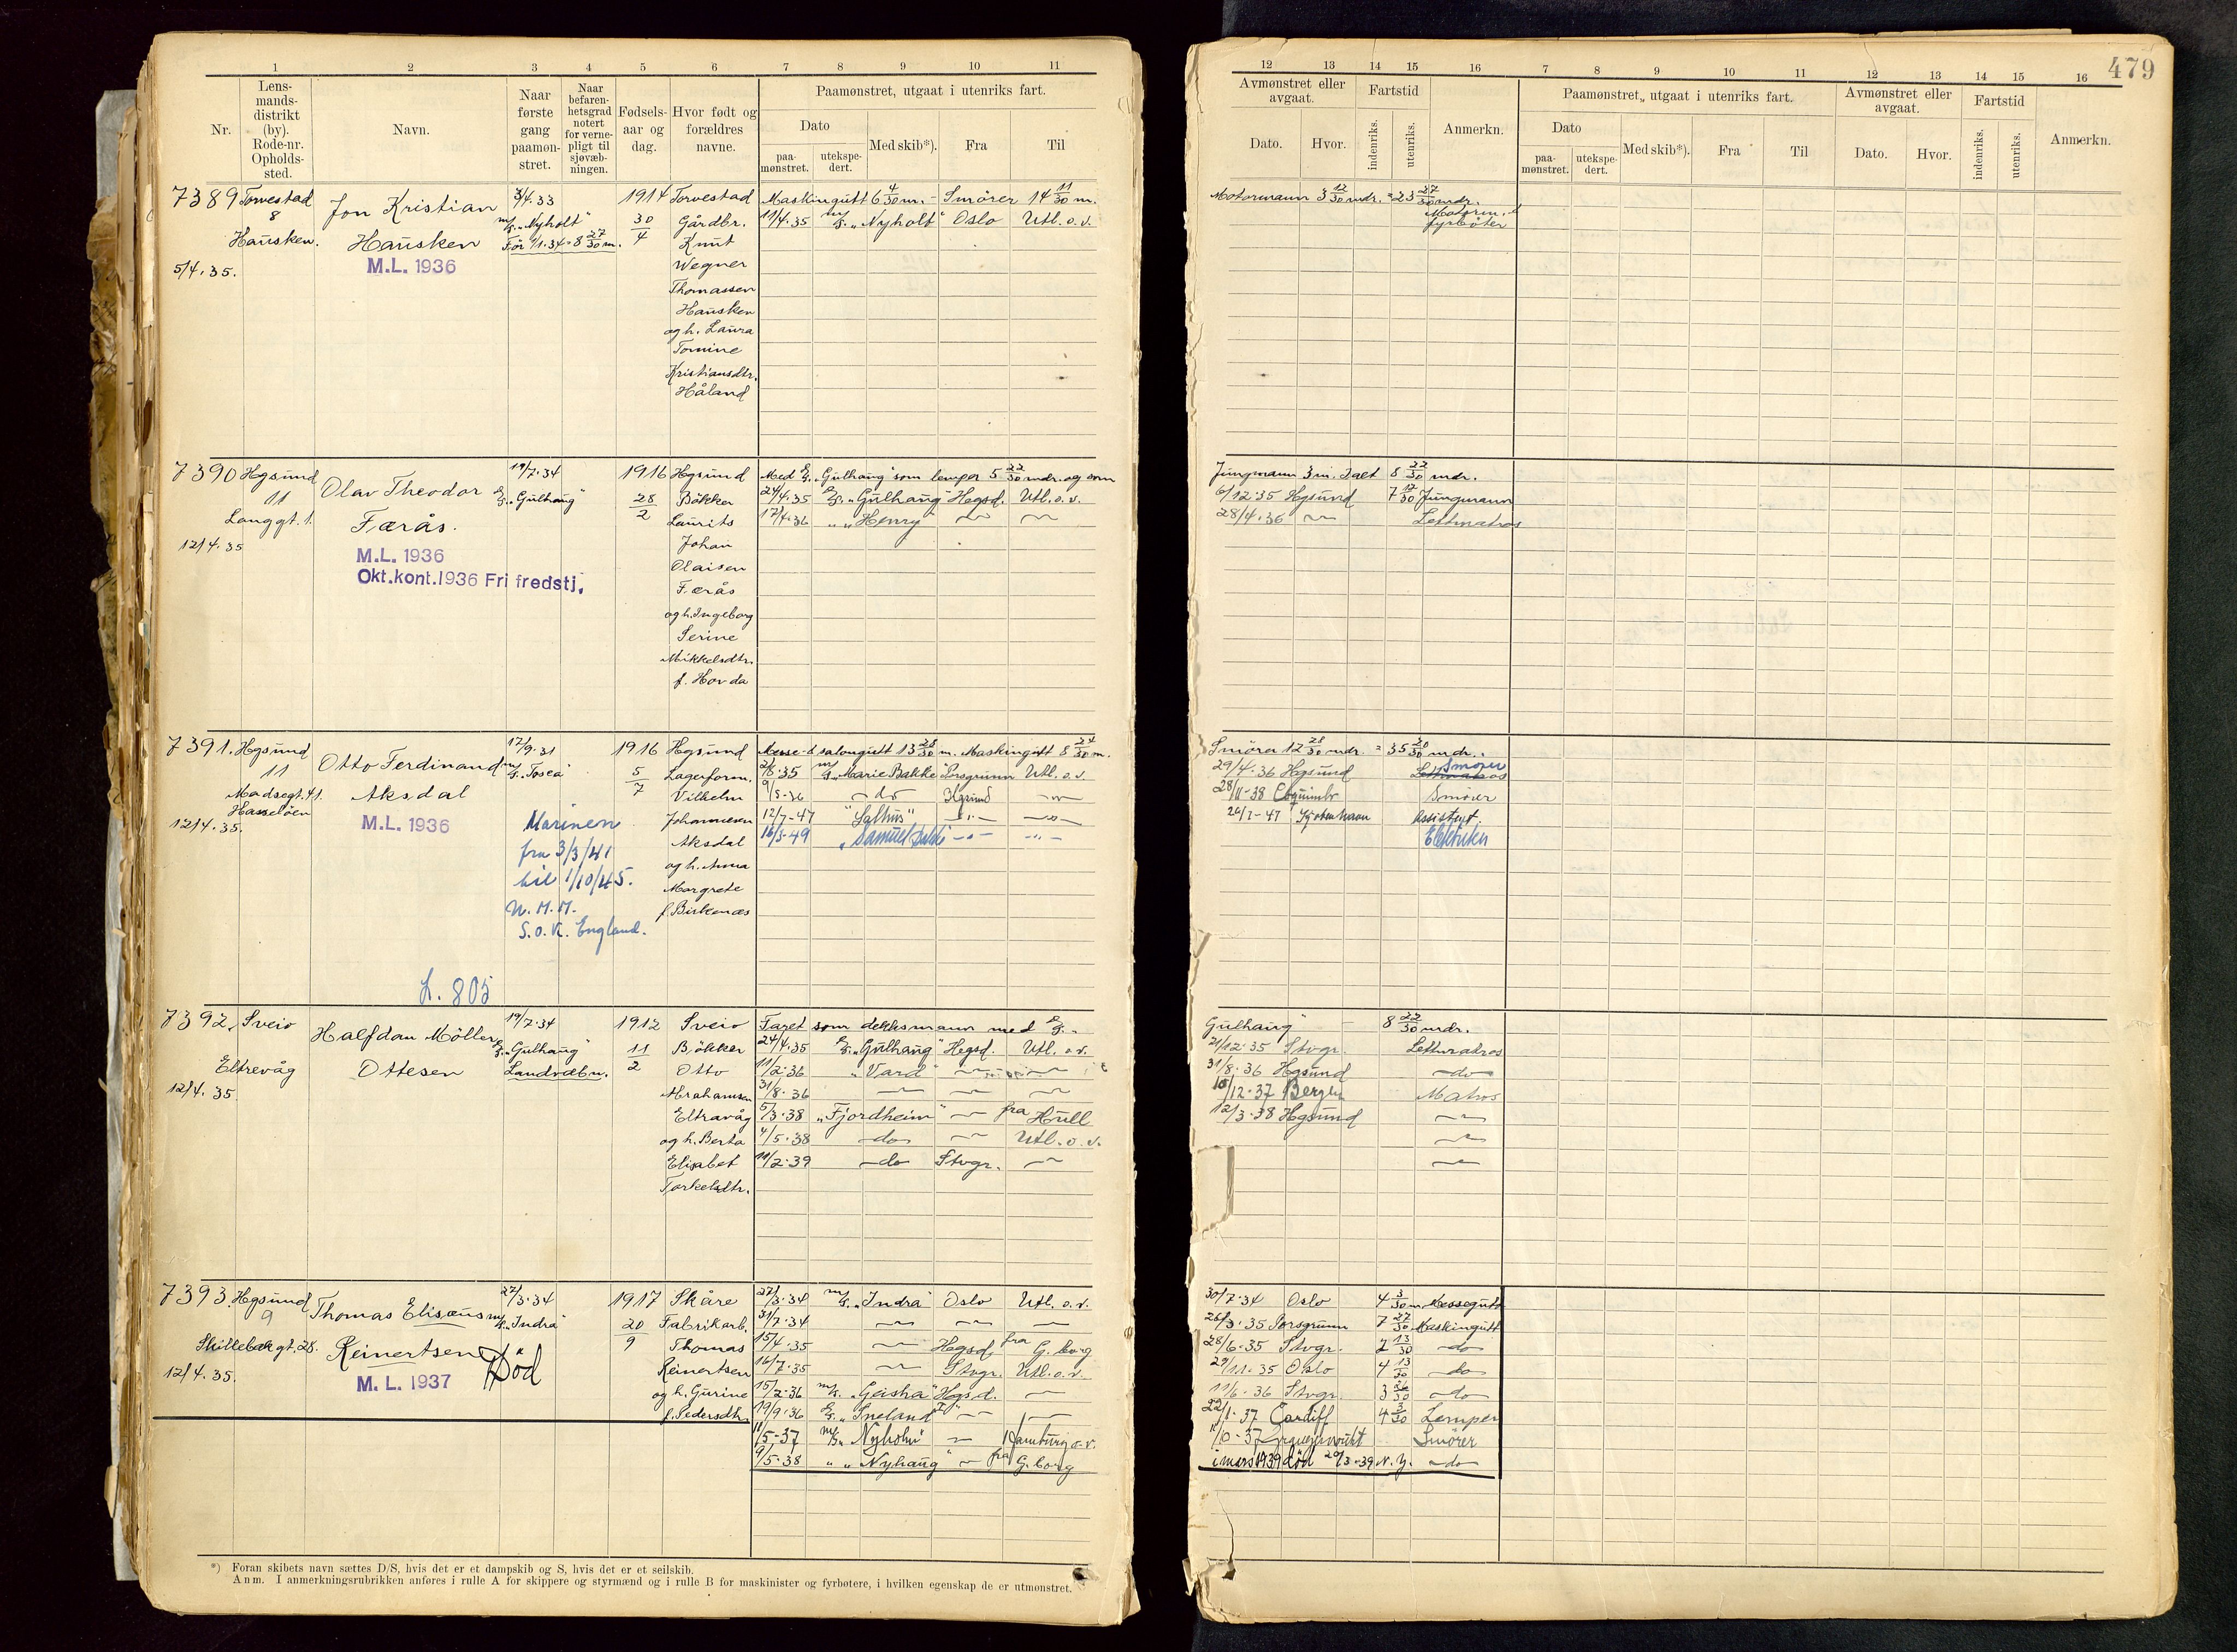 479
1 2 3 4 5 6 7 8 9 10 11
Nr.
Lens-
mands-
distrikt
(by).
Rode-nr.
Opholds-
sted.
Navn.
Naar
første
gang
paamøn-
stret.
Naar
befaren-
hetsgrad
notert
for verne-
pligt til
sjøvæb-
ningen.
Fødsels-
aar og
dag.
Hvor født og
forældres
navne.
Paamønstret, utgaat i utenriks fart.
Dato
paa-
mønstret.
utekspe-
dert.
Med skib*).
Fra
Til
12 13 14 15 16 7 8 9 10 11 12 13 14 15 16
Avmønstret eller
avgaat.
Dato.
Hvor.
Fartstid
indenriks.
utenriks.
Anmerkn.
Paamønstret, utgaat i utenriks fart.
Dato
paa-
mønstret.
utekspe-
dert.
Med skib*).
Fra
Til
Avmønstret eller
avgaat.
Dato.
Hvor.
Fartstid
indenriks.
utenriks.
Anmerkn.
7389 Torvestad
8
Hausken.
5/4.35.
Jon Kristian
Hausken
M.L. 1936
3/4.33
m/s. "Nyholt"
Før 1/1.34 = 8 27/30 m.
1914
30/4
Torvestad
Gårdbr.
Knut
Wegner
Thomassen
Hausken
og h. Laura
Tomine
Kristiansdtr.
Håland
Maskingutt 6 4/30 m. - Smører 14 11/30 m.
11/4.35 m/s. "Nyholt" Oslo Utl. o. v.
Motormann 3 12/30 mdr. = 23 27/30 mdr.
Motorm. &
fyrbøter
7390 Hgsund
11
Langgt. 1.
12/4.35
Olav Theodor
Færås.
M.L. 1936
Okt.kont.1936 Fri fredstj.
19/7.34
D/S. "Gulhaug"
1916
28/2
Hgsund
Bøkker
Laurits
Johan
Olaisen
Færås
og h. Ingeborg
Serine
Mikkelsdtr.
f. Horda
Med D/S. "Gulhaug" som lemper 5 22/30 mdr. og som
24/4.35 D/S. "Gulhaug" Hegsd. Utl. o. v.
17/4.36 " "Henry"
Jungmann 3 m. Ialt 8 22/30 mdr.
6/12.35 Hgsund 7 12/30 Jungmann
28/4.36 Lettmatros
7391. Hgsund
11
Madsegt. 41.
Hasseløen
12/4.35.
Otto Ferdinand
Aksdal
M.L. 1936
17/9.31
m/s. "Tosca"
Marinen
fra 3/3/41
til 1/10/45.
N.M.M.
S.O.K. England.
L. 805
1916
5/7
Hgsund
Lagerform.
Vilhelm
Johannesen
Aksdal
og h. Anna
Margrete
f. Birkenæs
Messe- & salongutt 13 28/30 m. Maskingutt 8 24/30 m.
2/6.35 m/s. "Marie Bakke" Porsgrunn Utl. o. v.
9/5-36 -do- Hgsund
12/7-47 "Salhus"
16/5-49 "Samuel Bakke"
Smører 12 28/30 mdr. = 35 20/30 mdr.
29/4.36 Hgsund Lettmatros Smører
28/11-38 Coquimbo Smører
24/7-47 Kjøbenhavn Assistent.
Elektriker
7392. Sveio
Eltrevåg
12/4.35
Halfdan Möller
Ottesen
19/7.34
D/S. "Gulhaug"
Landvæbn.
1912
11/2
Sveio
Bökker
Otto
Abrahamsen
Eltravåg
og h. Berta
Elisabet
Torkelsdtr.
Faret som dekksmann med D/S. "
24/4.35 D/S. "Gulhaug" Hegsd. Utl. o. v.
11/2.36 "Vard"
31/8.36
5/3.38 "Fjordheim" fra Hull
4/5.38 -do- Utl. o. v.
11/2.39 -do- Stvgr.
Gulhaug" - 8 22/30 mdr.
21/12.35 Stvgr. Lettmatros
31/8.36 Hgsund -do-
10/12.37 Bergen Matros
12/3.38 Hgsund
7393. Hgsund
9
Skillebekgt. 28.
12/4.35.
Thomas Elisæus
Reinertsen
Död
M. L. 1937
27/3.34
m/s. "Indra"
1917
20/9
Skåre
Fabrikarb.
Thomas
Reinertsen
og h. Gurine
f. Pedersdtr.
27/3.34 m/s. "Indra" Oslo Utl. o. v.
31/7.34
15/4.35 Hegsd. fra G. borg
16/7.35 Stvgr. Utl. o. v.
15/2.36 m/s. "Geisha" Hegsd.
19/9.36 D/S. "Sneland I"
11/5-37 m/s. "Nyholm" Hamburg o. v.
9/5.38 " "Nyhaug" fra G. borg
30/7.34 Oslo 4 3/30 m. Messegutt
26/3.35 Porsgrunn 7 27/30 Maskingutt
28/6.35 Stvgr. 2 13/30 do
29/11.35 Oslo 4 13/30 do
11/6.36 Stvgr. 3 26/30 do
22/1.37 Cardiff 4 3/30 Lemper
11/10-37 Smører
i mars 1939 död 20/3-39 N. Y. do
*) Foran skibets navn sættes D/S, hvis det er et dampskib og S, hvis det er et seilskib.
Anm. I anmerkningsrubrikken anføres i rulle A for skippere og styrmænd og i rulle B for maskinister og fyrbøtere, i hvilken egenskap de er utmønstret.